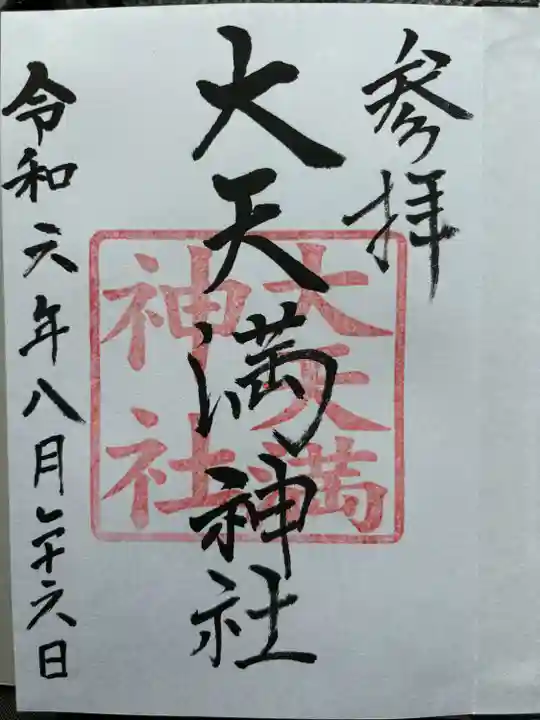 参拝
大天満神社
令和六年八月二十六日
大天満
神社